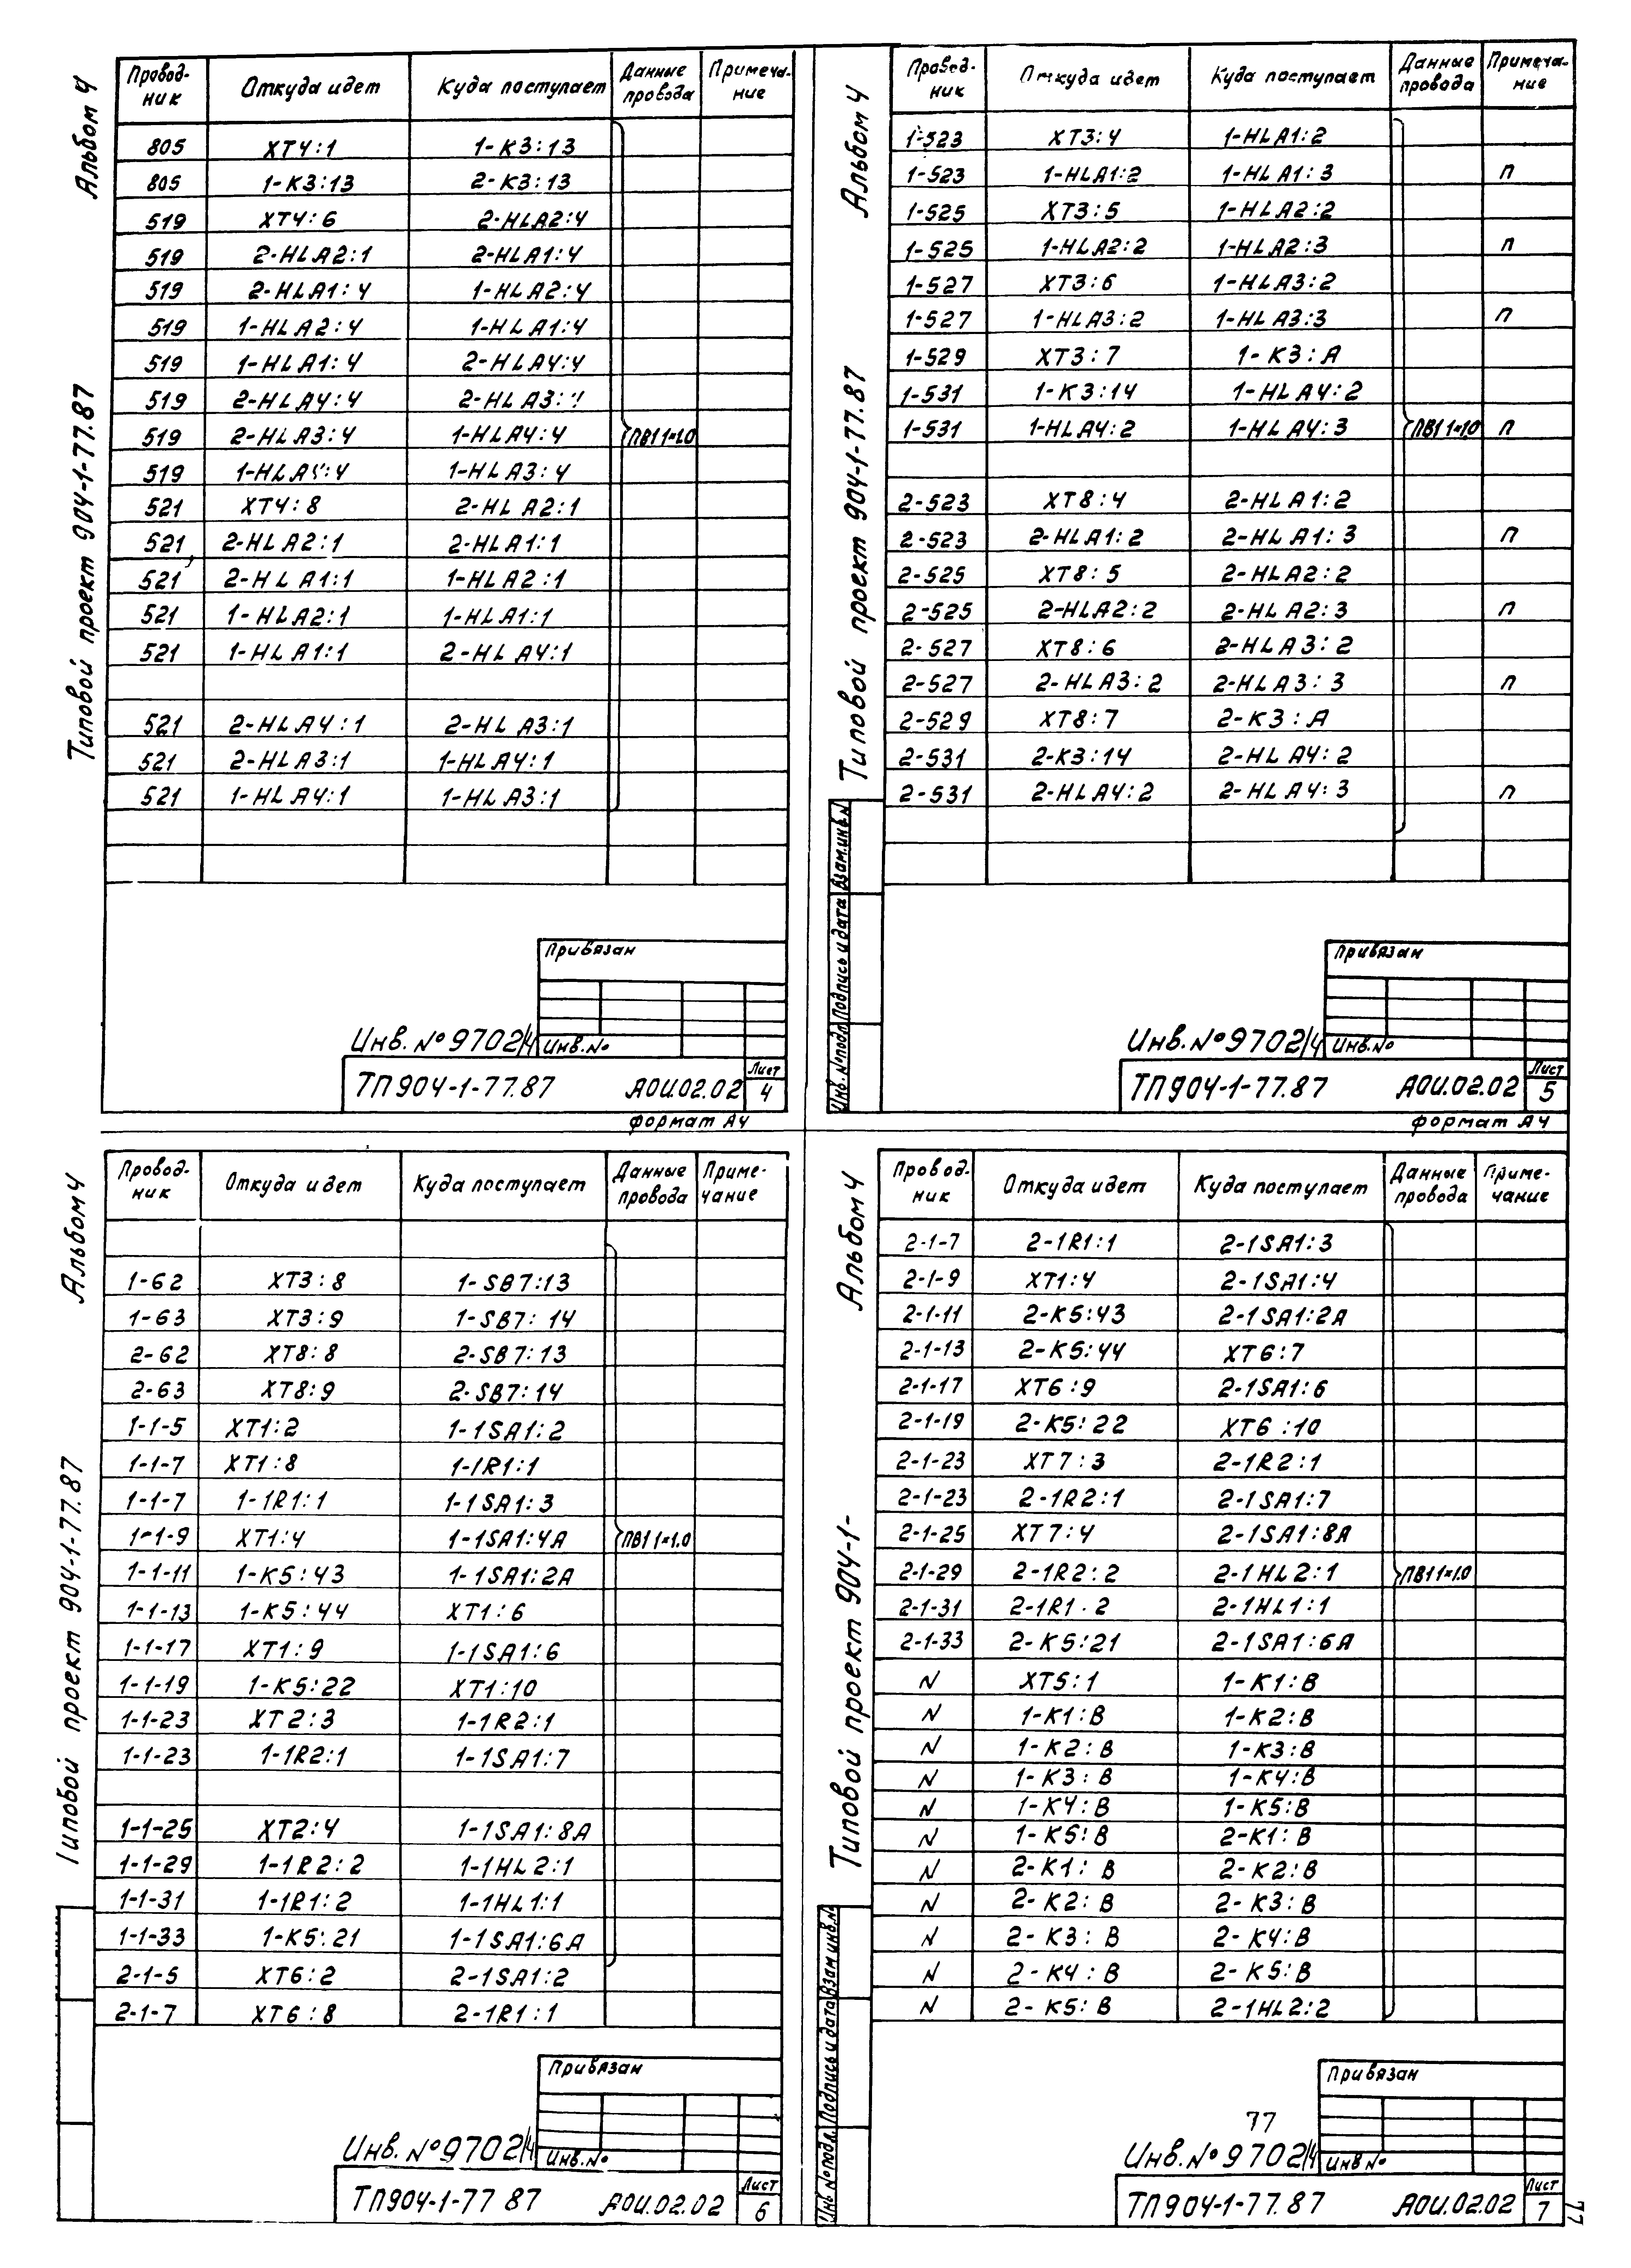 Альбом 4
Типовой проект 904-1-77.87
Провод-ник Откуда идет Куда поступает Данные провода Примеча-ние
805 XT4:1 1-K3:13
805 1-K3:13 2-K3:13
519 XT4:6 2-HLA2:4
519 2-HLA2:1 2-HLA1:4
519 2-HLA1:4 1-HLA2:4
519 1-HLA2:4 1-HLA1:4
519 1-HLA1:4 2-HLA4:4
519 2-HLA4:4 2-HLA3:
519 2-HLA3:4 1-HLA4:4 ПВ1 1×1.0
519 1-HLA4:4 1-HLA3:4
521 XT4:8 2-HLA2:1
521 2-HLA2:1 2-HLA1:1
521 2-HLA1:1 1-HLA2:1
521 1-HLA2:1 1-HLA1:1
521 1-HLA1:1 2-HLA4:1
521 2-HLA4:1 2-HLA3:1
521 2-HLA3:1 1-HLA4:1
521 1-HLA4:1 1-HLA3:1
Привязан
Инв. № 9702/4 Инв.№
ТП904-1-77.87 АОИ.02.02 Лист 4
формат А4
Альбом 4
Типовой проект 904-1-77.87
Провод-ник Откуда идет Куда поступает Данные провода Примеча-ние
1-523 XT3:4 1-HLA1:2
1-523 1-HLA1:2 1-HLA1:3 п
1-525 XT3:5 1-HLA2:2
1-525 1-HLA2:2 1-HLA2:3 п
1-527 XT3:6 1-HLA3:2
1-527 1-HLA3:2 1-HLA3:3 п
1-529 XT3:7 1-K3:A
1-531 1-K3:14 1-HLA4:2
1-531 1-HLA4:2 1-HLA4:3 ПВ1 1×1,0 п
2-523 XT8:4 2-HLA1:2
2-523 2-HLA1:2 2-HLA1:3 п
2-525 XT8:5 2-HLA2:2
2-525 2-HLA2:2 2-HLA2:3 п
2-527 XT8:6 2-HLA3:2
2-527 2-HLA3:2 2-HLA3:3 п
2-529 XT8:7 2-K3:A
2-531 2-K3:14 2-HLA4:2
2-531 2-HLA4:2 2-HLA4:3 п
Инв. №подл. Подпись и дата Взам.инв.№
Привязан
Инв. № 9702/4 Инв.№
ТП904-1-77.87 АОИ.02.02 Лист 5
формат А4
Альбом 4
Типовой проект 904-1-77.87
Провод-ник Откуда идет Куда поступает Данные провода Приме-чание
1-62 XT3:8 1-SB7:13
1-63 XT3:9 1-SB7:14
2-62 XT8:8 2-SB7:13
2-63 XT8:9 2-SB7:14
1-1-5 XT1:2 1-1SA1:2
1-1-7 XT1:8 1-1R1:1
1-1-7 1-1R1:1 1-1SA1:3
1-1-9 XT1:4 1-1SA1:4A ПВ1 1×1.0
1-1-11 1-K5:43 1-1SA1:2A
1-1-13 1-K5:44 XT1:6
1-1-17 XT1:9 1-1SA1:6
1-1-19 1-K5:22 XT1:10
1-1-23 XT2:3 1-1R2:1
1-1-23 1-1R2:1 1-1SA1:7
1-1-25 XT2:4 1-1SA1:8A
1-1-29 1-1R2:2 1-1HL2:1
1-1-31 1-1R1:2 1-1HL1:1
1-1-33 1-K5:21 1-1SA1:6A
2-1-5 XT6:2 2-1SA1:2
2-1-7 XT6:8 2-1R1:1
Привязан
Инв. № 9702/4 Инв.№
ТП904-1-77 87 АОИ.02.02 Лист 6
Альбом 4
Типовой проект 904-1-
Провод-ник Откуда идет Куда поступает Данные провода Приме-чание
2-1-7 2-1R1:1 2-1SA1:3
2-1-9 XT1:4 2-1SA1:4
2-1-11 2-K5:43 2-1SA1:2A
2-1-13 2-K5:44 XT6:7
2-1-17 XT6:9 2-1SA1:6
2-1-19 2-K5:22 XT6:10
2-1-23 XT7:3 2-1R2:1
2-1-23 2-1R2:1 2-1SA1:7
2-1-25 XT7:4 2-1SA1:8A
2-1-29 2-1R2:2 2-1HL2:1 ПВ1 1×1.0
2-1-31 2-1R1.2 2-1HL1:1
2-1-33 2-K5:21 2-1SA1:6A
N XT5:1 1-K1:B
N 1-K1:B 1-K2:B
N 1-K2:B 1-K3:B
N 1-K3:B 1-K4:B
N 1-K4:B 1-K5:B
N 1-K5:B 2-K1:B
N 2-K1:B 2-K2:B
N 2-K2:B 2-K3:B
N 2-K3:B 2-K4:B
N 2-K4:B 2-K5:B
N 2-K5:B 2-1HL2:2
Инв №подл. Подпись и дата Взам инв.№
Привязан
77
Инв. № 9702/4 Инв №
ТП904-1-77.87 АОИ.02.02 Лист 7
77